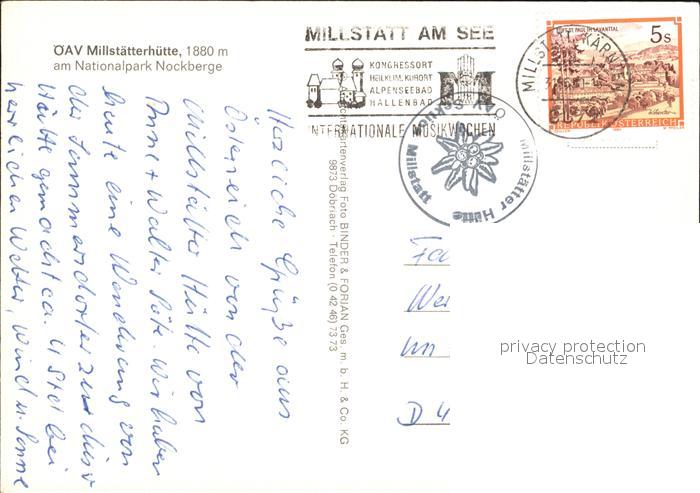 ÖAV Millstätterhütte, 1880 m
am Nationalpark Nockberge
MILLSTATT AM SEE
KONGRESSORT
HEILKLIM. KURORT
ALPENSEEBAD
HALLENBAD
INTERNATIONALE MUSIKWOCHEN
MILLSTATT, KÄRNTEN
9872
STIFT ST. PAUL IM LAVANTTAL
5S
REPUBLIK ÖSTERREICH
ÖAV Sektion Millstatt
Millstätter Hütte
Ansichtskartenverlag Foto BINDER & FORIAN Ges. m. b. H. & Co. KG
9873 Döbriach · Telefon (0 42 46) 73 73
Herzliche Grüße aus
Österreich von der
Millstätter Hütte von
Anne + Walter. Wir haben
heute eine Wanderung von
der Sommerdorfer zu dieser
Hütte gemacht ca. 4 Std bei
herrlichen Wetter, Wind u. Sonne
Fa
We
Un
D 4
privacy protection
Datenschutz